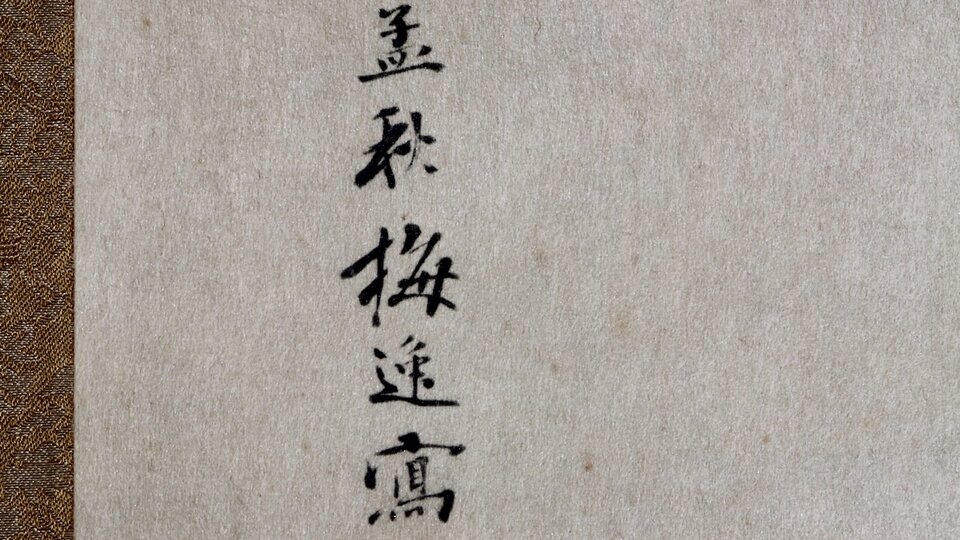 孟秋梅逸寫